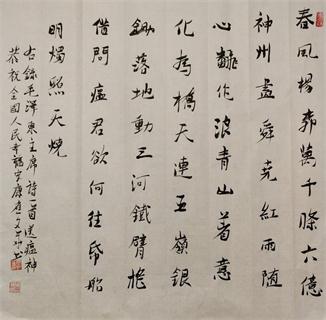 春风杨柳万千條六億
神州盡舜尧紅雨随
心翻作浪青山着意
化為橋天連五嶺銀
鋤落地動三河鐵臂摇
借問瘟君欲何往紙船
明燭照天燒
右錄毛澤東主席詩一首送瘟神
恭祝全國人民幸福安康